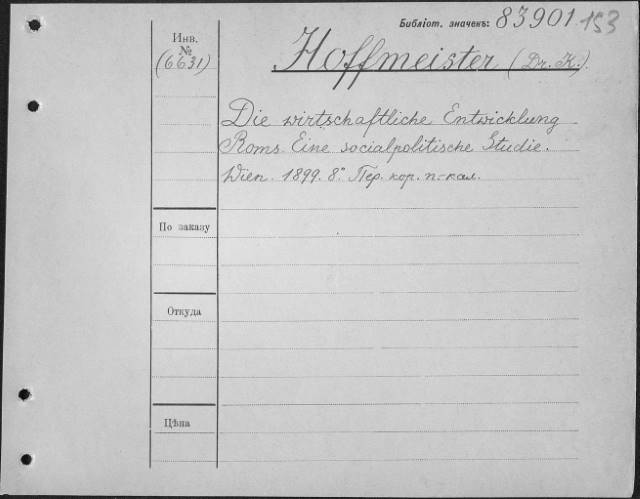 Библіот. значекъ: 83901. 153
Инв.
№
(6631)
Hoffmeister (Dr. K.)
Die wirtschaftliche Entwicklung
Roms. Eine socialpolitische Studie.
Wien. 1899. 8° Пер. кор. п.-кал.
По заказу
Откуда
Цѣна